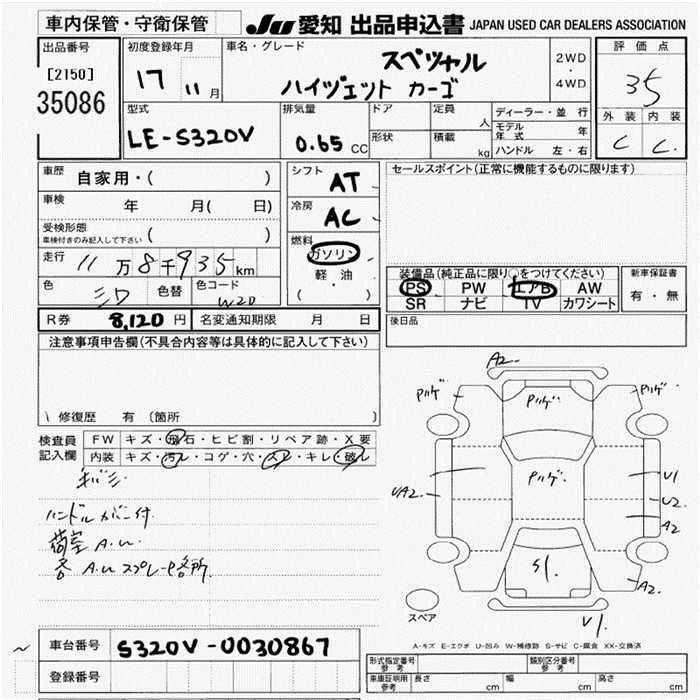 車内保管・守衛保管
JU 愛知 出品申込書 JAPAN USED CAR DEALERS ASSOCIATION
出品番号
[2150]
35086
初度登録年月
17 11 月
車名・グレード
スペツャル
ハイヅェット カーゴ
2WD
・
4WD
評価点
35
外装 内装
C C
型式
LE-S320V
排気量
0.65 CC
ドア
形状
定員 人
積載 kg
ディーラー・並行
モデル年式 年
ハンドル 左・右
車歴
自家用・( )
車検
年 月( 日)
受検形態
車検付きのみ記入して下さい ( )
走行
11万8千935km
色
シロ
色替
色コード
W20
シフト
AT
冷房
AC
燃料
ガソリン
軽・油
( )
セールスポイント(正常に機能するものに限ります)
装備品(純正品に限り○をつけてください)
PS PW エアB AW
SR ナビ TV カワシート
新車保証書
有・無
後日品
R券 8,120 円
名変通知期限 月 日
注意事項申告欄(不具合内容等は具体的に記入して下さい)
修復歴 有 (箇所 )
検査員
記入欄
FW キズ・飛石・ヒビ割・リペア跡・X要
内装 キズ・汚レ・コゲ・穴・スレ・キレ・破レ
ハンドルカバー付
荷室 A.u.
各 A.u スプレー色各所.
A2
Pハゲ
Pハゲ
Pハゲ
Pハゲ
UA2
U1
U2
A2
S1.
A2.
U1.
スペア
A-キズ E-エクボ U-凹み W-補修跡 S-サビ C-腐食 XX-交換済
車台番号 S320V-0030867
登録番号
形式指定番号
参考
類別区分番号
参考
車庫証明用
参考
長さ cm 幅 cm 高さ cm